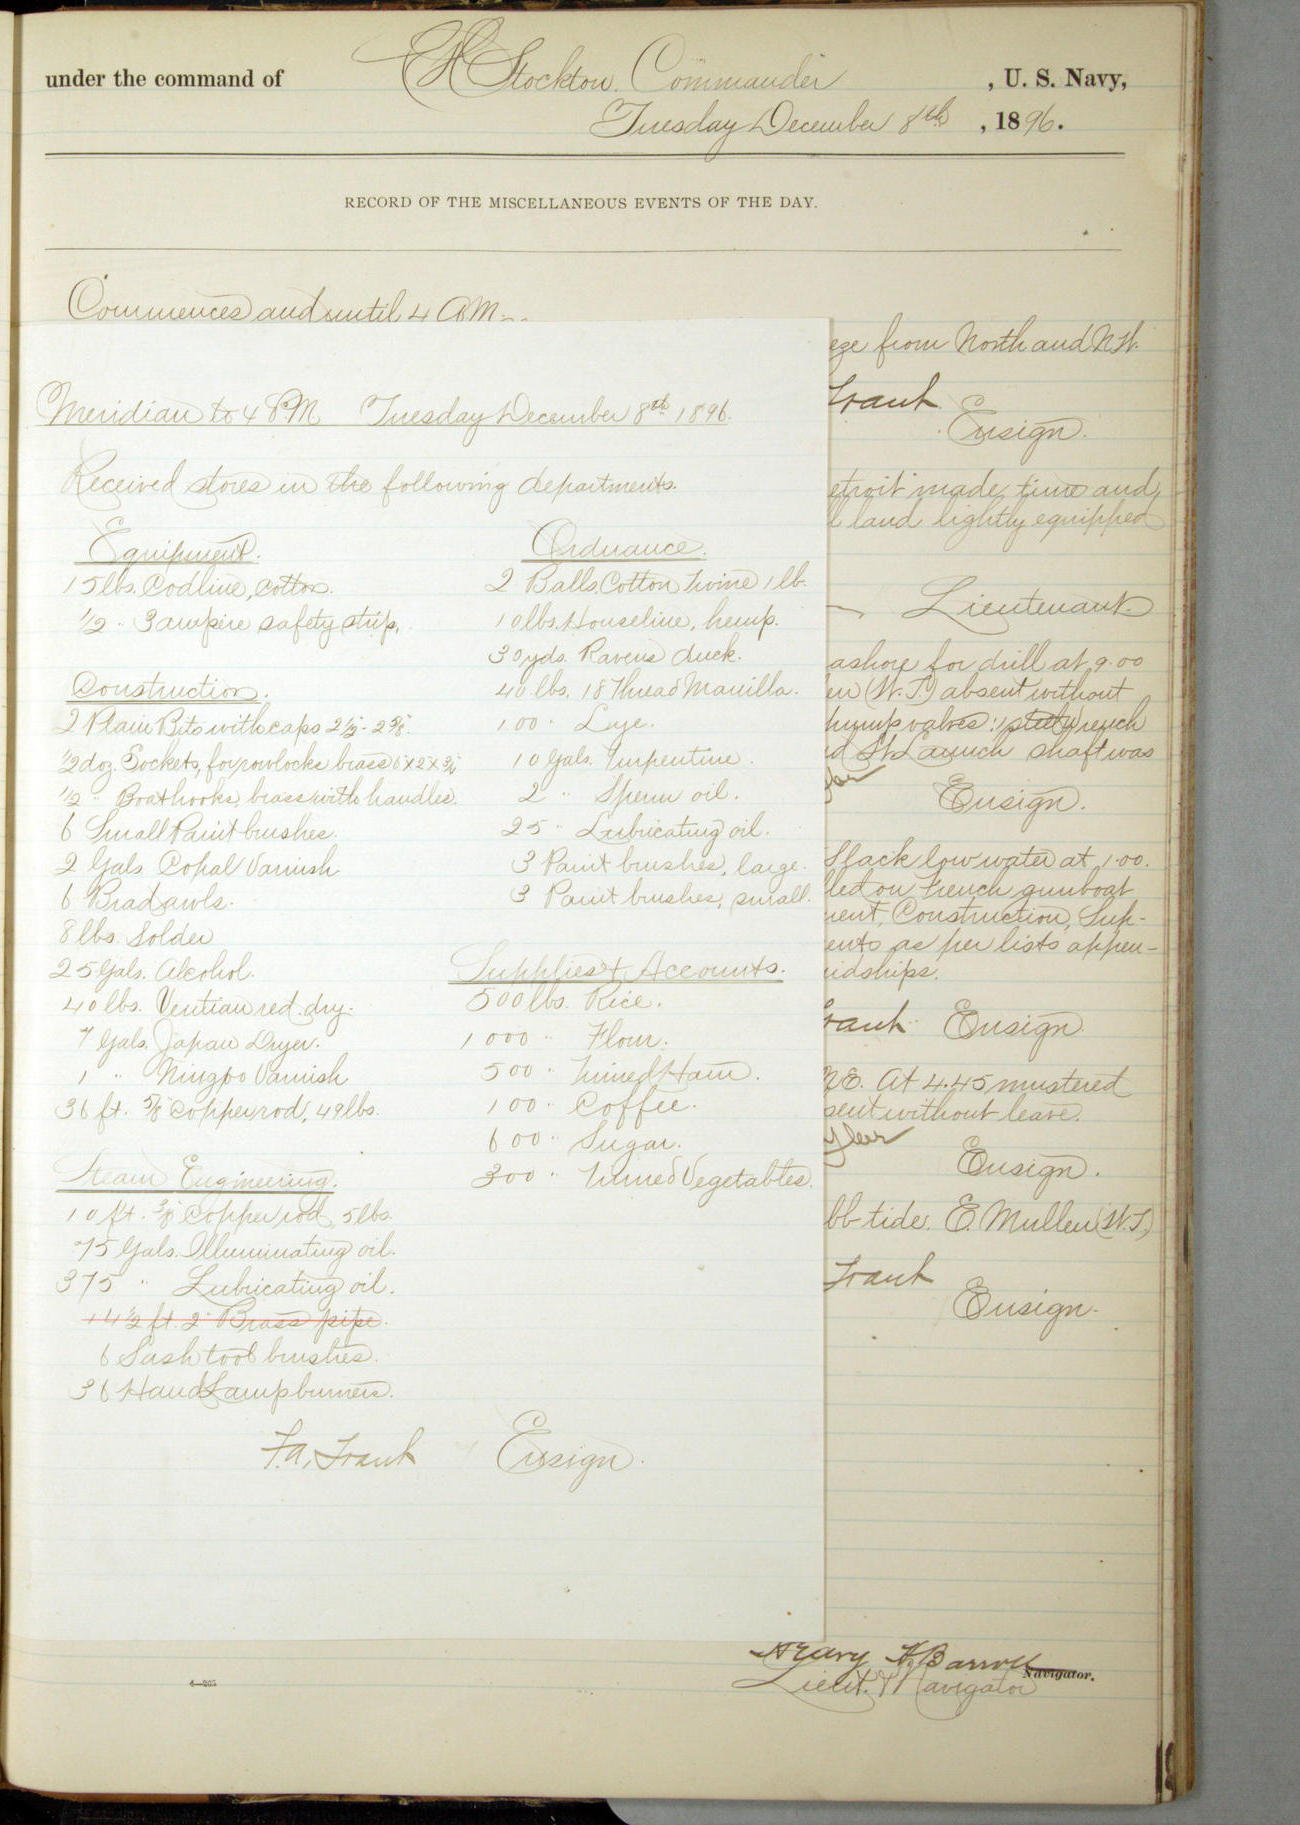 under the command of C H Stockton, Commander, U. S. Navy,
Tuesday December 8th, 1896.
RECORD OF THE MISCELLANEOUS EVENTS OF THE DAY.
Commences and until 4 A.M.
Meridian to 4 P.M. Tuesday December 8th 1896.
Received stores in the following departments.
Equipment.
15 lbs. Codline, cotton.
1/2 " 3 ampere safety strip.
Construction.
2 Plain Bits with caps
1/2 doz. Sockets, for rowlocks brass
1/2 " Boathooks, brass with handles.
6 Small Paint brushes.
2 Gals. Copal Varnish
6 Bradawls.
8 lbs. Solder
25 Gals. Alcohol.
40 lbs. Venitian red. dry.
7 Gals. Japan Dryer.
1 " Ningpo Varnish
36 ft. 5/8" Copper rod, 49 lbs.
Steam Engineering.
10 ft. 3/8" Copper rod, 5 lbs.
75 Gals. Illuminating oil.
375 " Lubricating oil.
14 1/2 ft. 2" Brass pipe.
6 Sash tool brushes.
36 Hand Lamp burners.
Ordnance.
2 Balls Cotton twine 1 lb.
10 lbs. Houseline, hemp.
30 yds. Ravens duck.
40 lbs. 18 Thread Manilla.
100 " Lye.
10 Gals. Turpentine.
2 " Sperm oil.
25 " Lubricating oil.
3 Paint brushes, large.
3 Paint brushes, small.
Supplies & Accounts.
500 lbs. Rice.
1000 " Flour.
500 " Tinned Ham.
100 " Coffee.
600 " Sugar.
300 " Tinned Vegetables.
F.A. Traut Ensign.
eze from North and N.W.
Traut
Ensign.
etroit made time and
l land lightly equipped
Lieutenant.
ashore for drill at 9.00
en (W.T.) absent without
pump valves: 1 steel wrench
d St. Launch shaft was
Ensign.
Slack low water at 1.00.
led on French gunboat
ment, Construction, Sup-
ents as per lists appen-
idships.
raut Ensign.
NE. At 4.45 mustered
sent without leave.
yler
Ensign.
bb tide. E. Mullen (W.T.)
Traut
Ensign.
Navigator.
Lieut. & Navigator
4—205